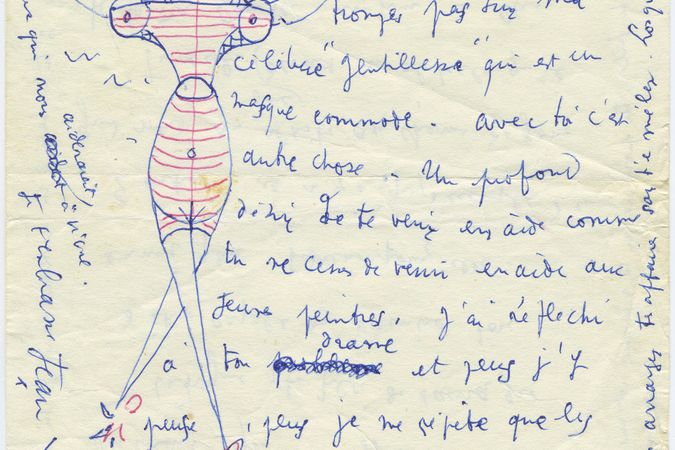 trompes pas sur ma
célèbre "gentillesse" qui est un
masque commode. avec toi c'est
autre chose. Un profond
désir de te venir en aide comme
tu ne cesses de venir en aide aux
jeunes peintres. J'ai réfléchi
à ton drame et plus j'y
pense, plus je me répète que les
qui nous aideraient
à vivre.
Je t'embrasse Jean
affaire